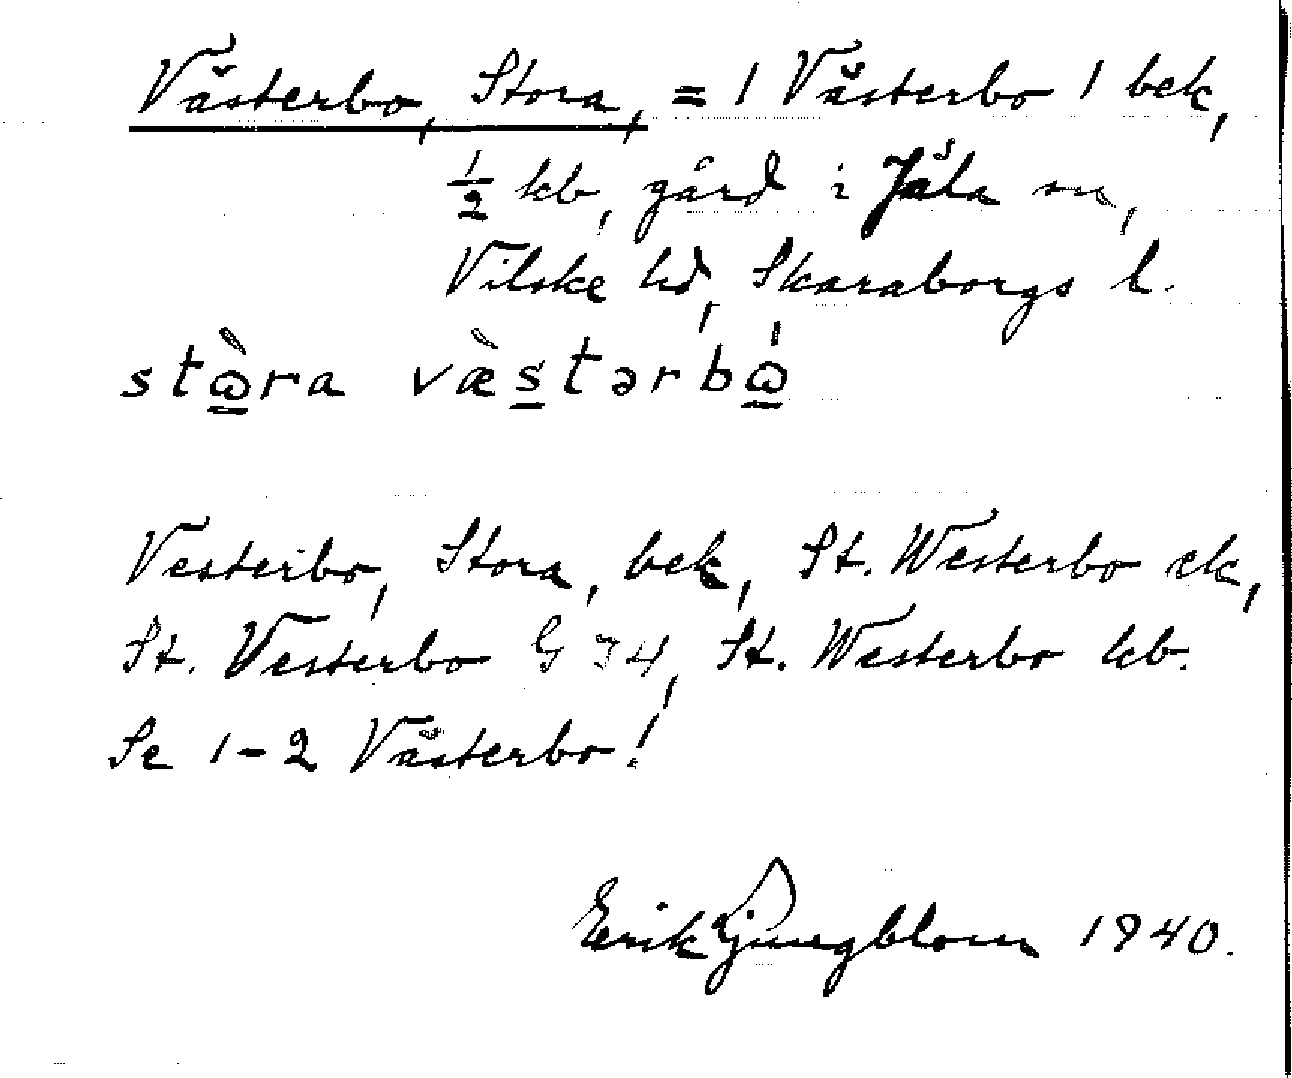 Västerbo, Stora, = 1 Västerbo 1 bek,
½ kb, gård i Jäla sn,
Vilske hd, Skaraborgs l.
stὼ̲ra væ̀s̲tərbώ̲
Vesterbo, Stora, bek, St. Westerbo ek,
St. Vesterbo G 34, St. Westerbo kb.
Se 1-2 Västerbo!
Erik Ljungblom 1940.